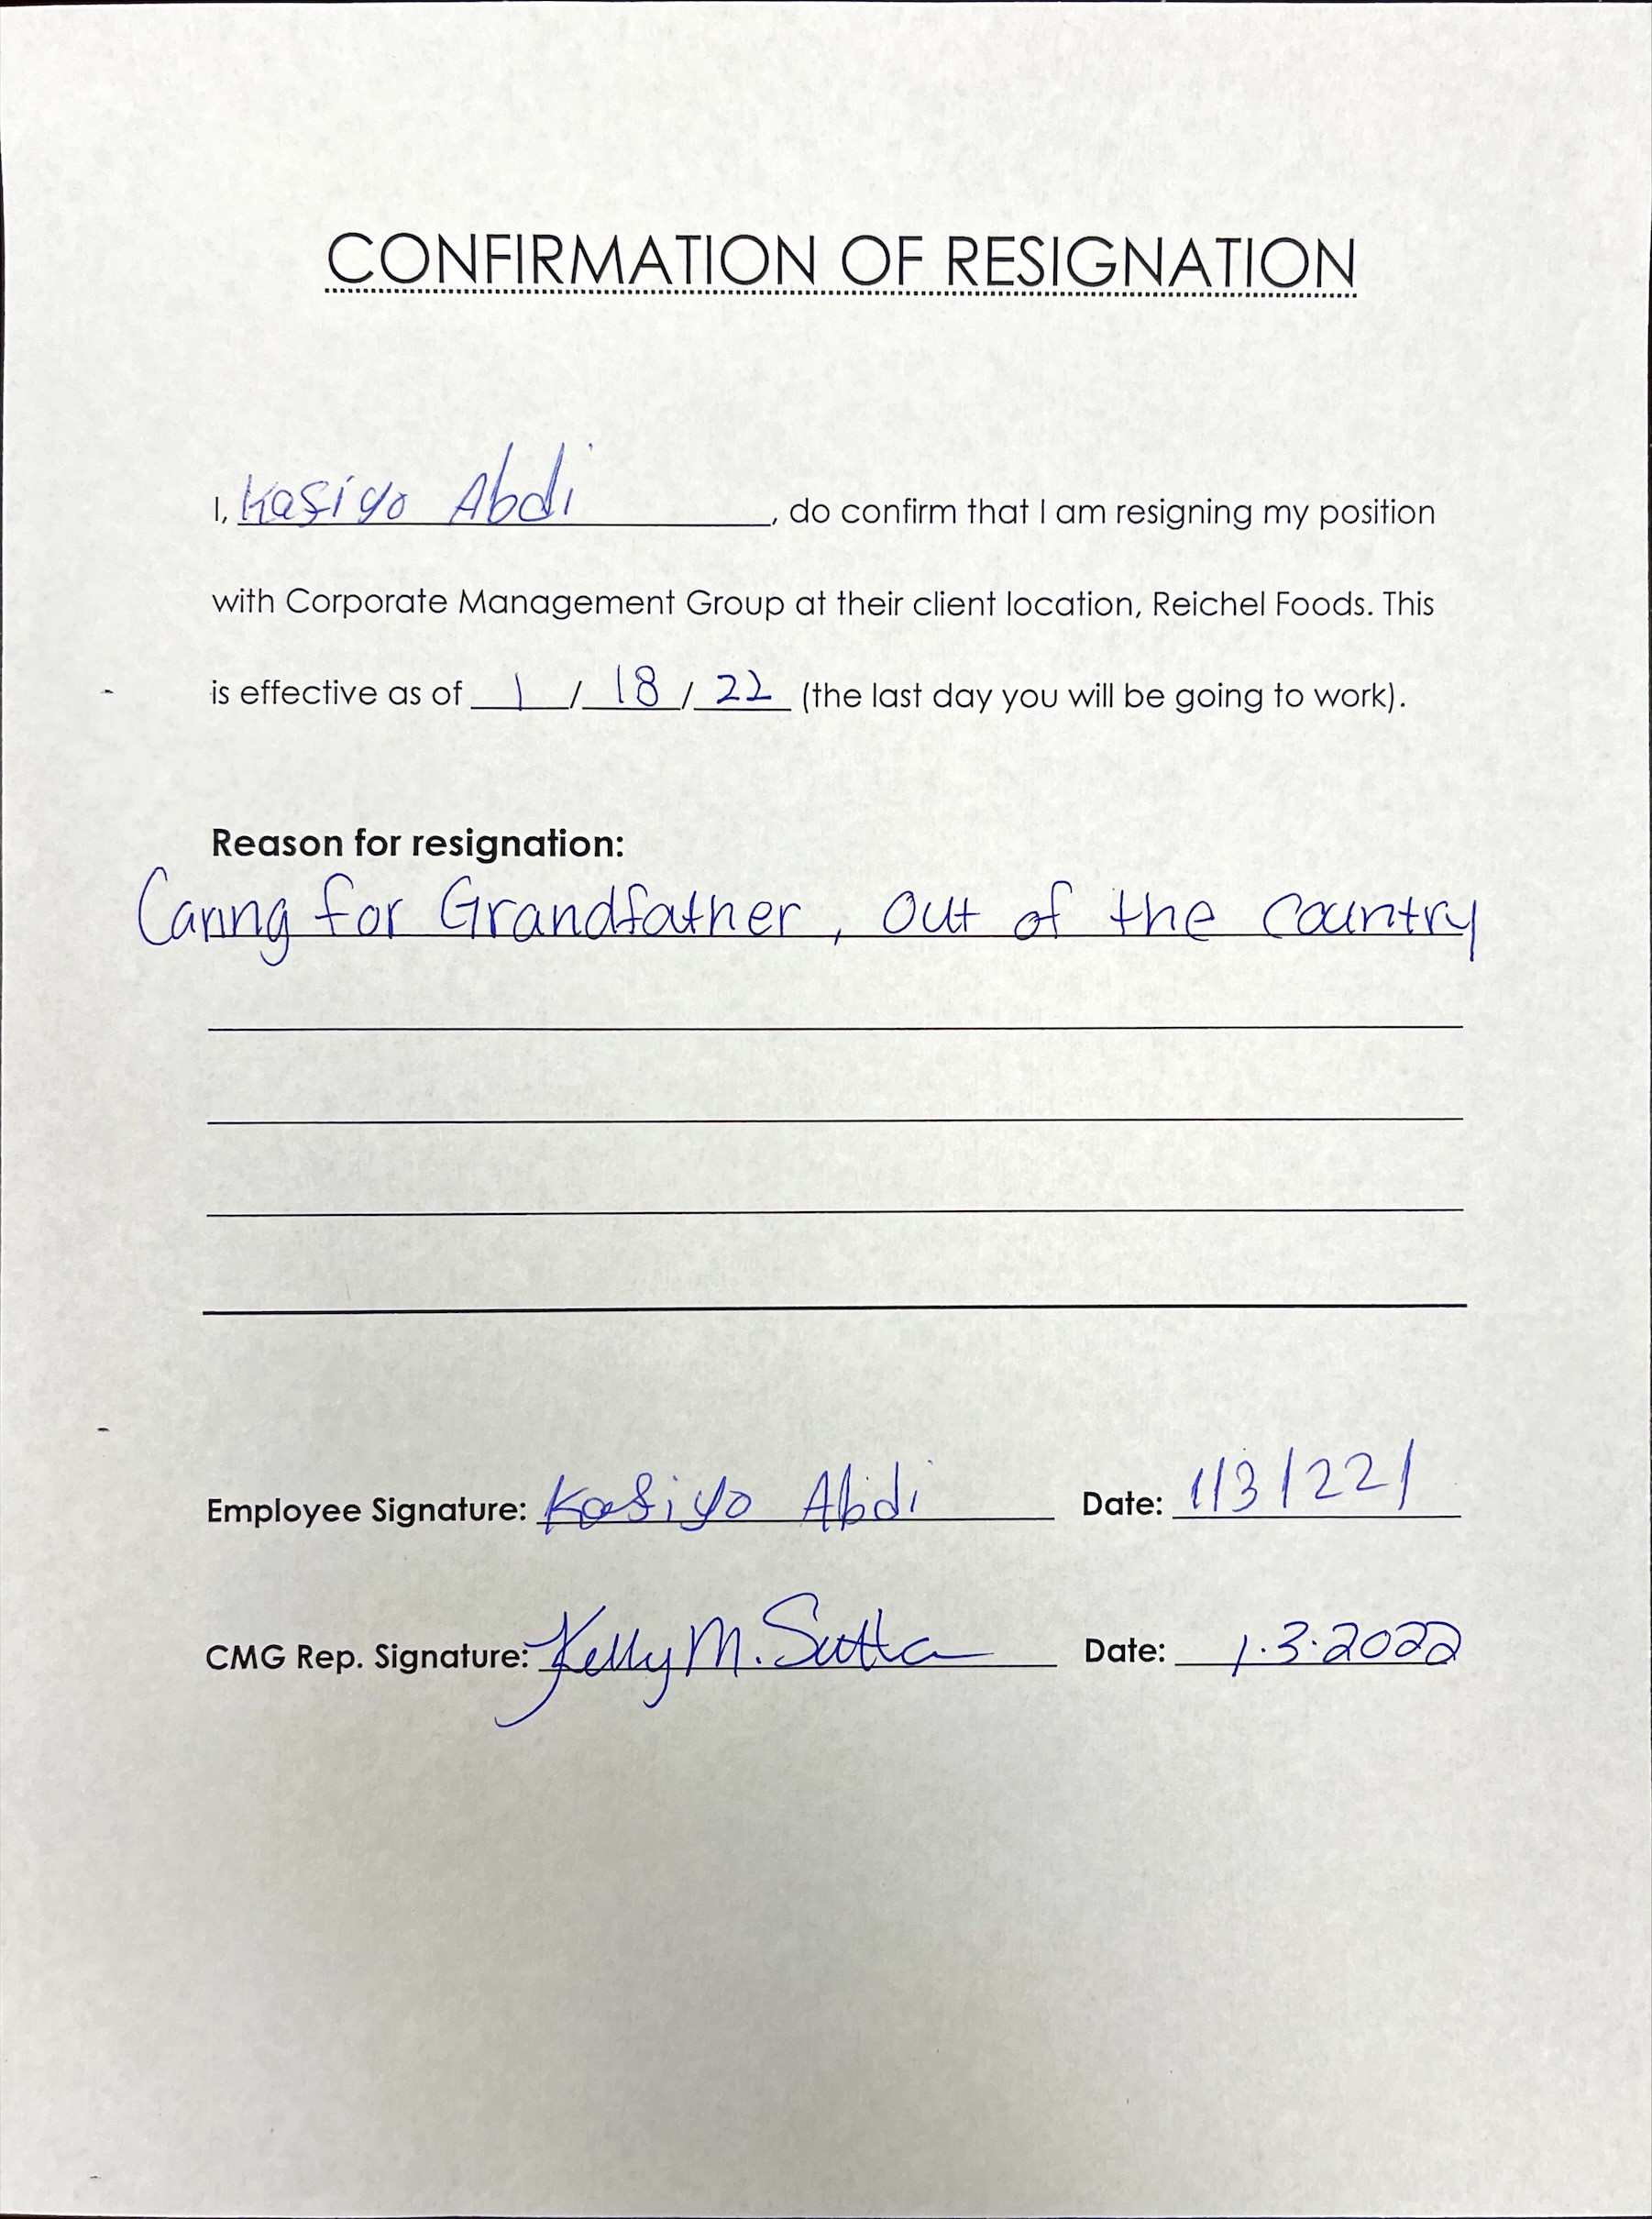 CONFIRMATION OF RESIGNATION
I, Kasiyo Abdi, do confirm that I am resigning my position
with Corporate Management Group at their client location, Reichel Foods. This
is effective as of 1 / 18 / 22 (the last day you will be going to work).
Reason for resignation:
Caring for Grandfather, out of the country
Employee Signature: Kasiyo Abdi Date: 1/3/22/
CMG Rep. Signature: Kelly M. Date: 1.3.2022